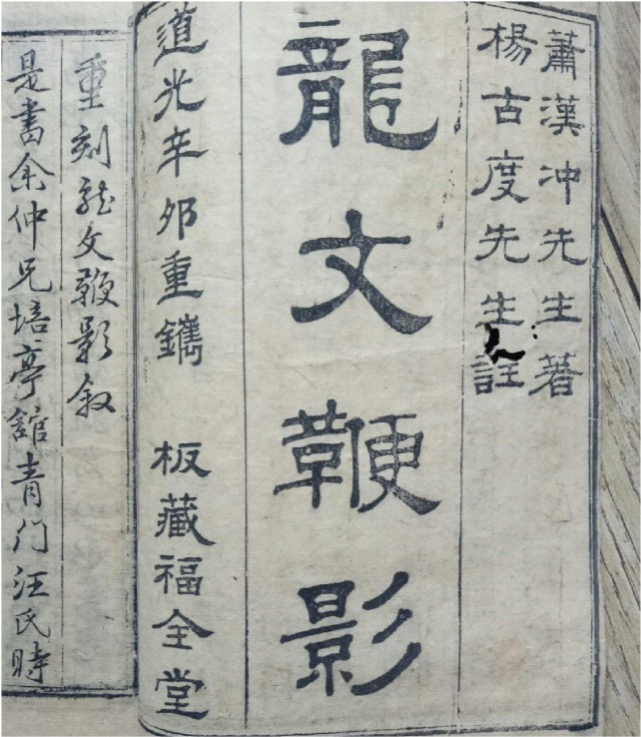 蕭漢沖先生著
楊古度先生註
龍文鞭影
道光辛卯重鐫 板藏福全堂
重刻龍文鞭影叙
是書余仲兄培亭館青门汪氏時